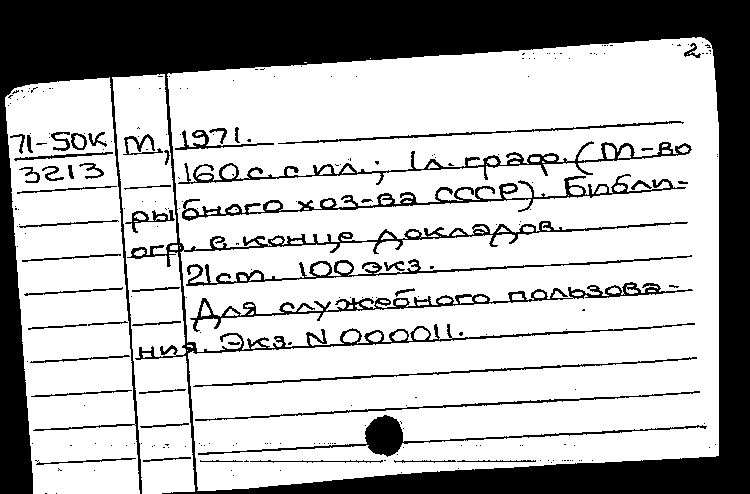 2
71-50К М., 1971.
3213 160 с. с ил.; 1 л. граф. (М-во
рыбного хоз-ва СССР). Библи-
огр. в конце докладов.
21 cm. 100 экз.
Для служебного пользова-
ния. Экз. N 000011.